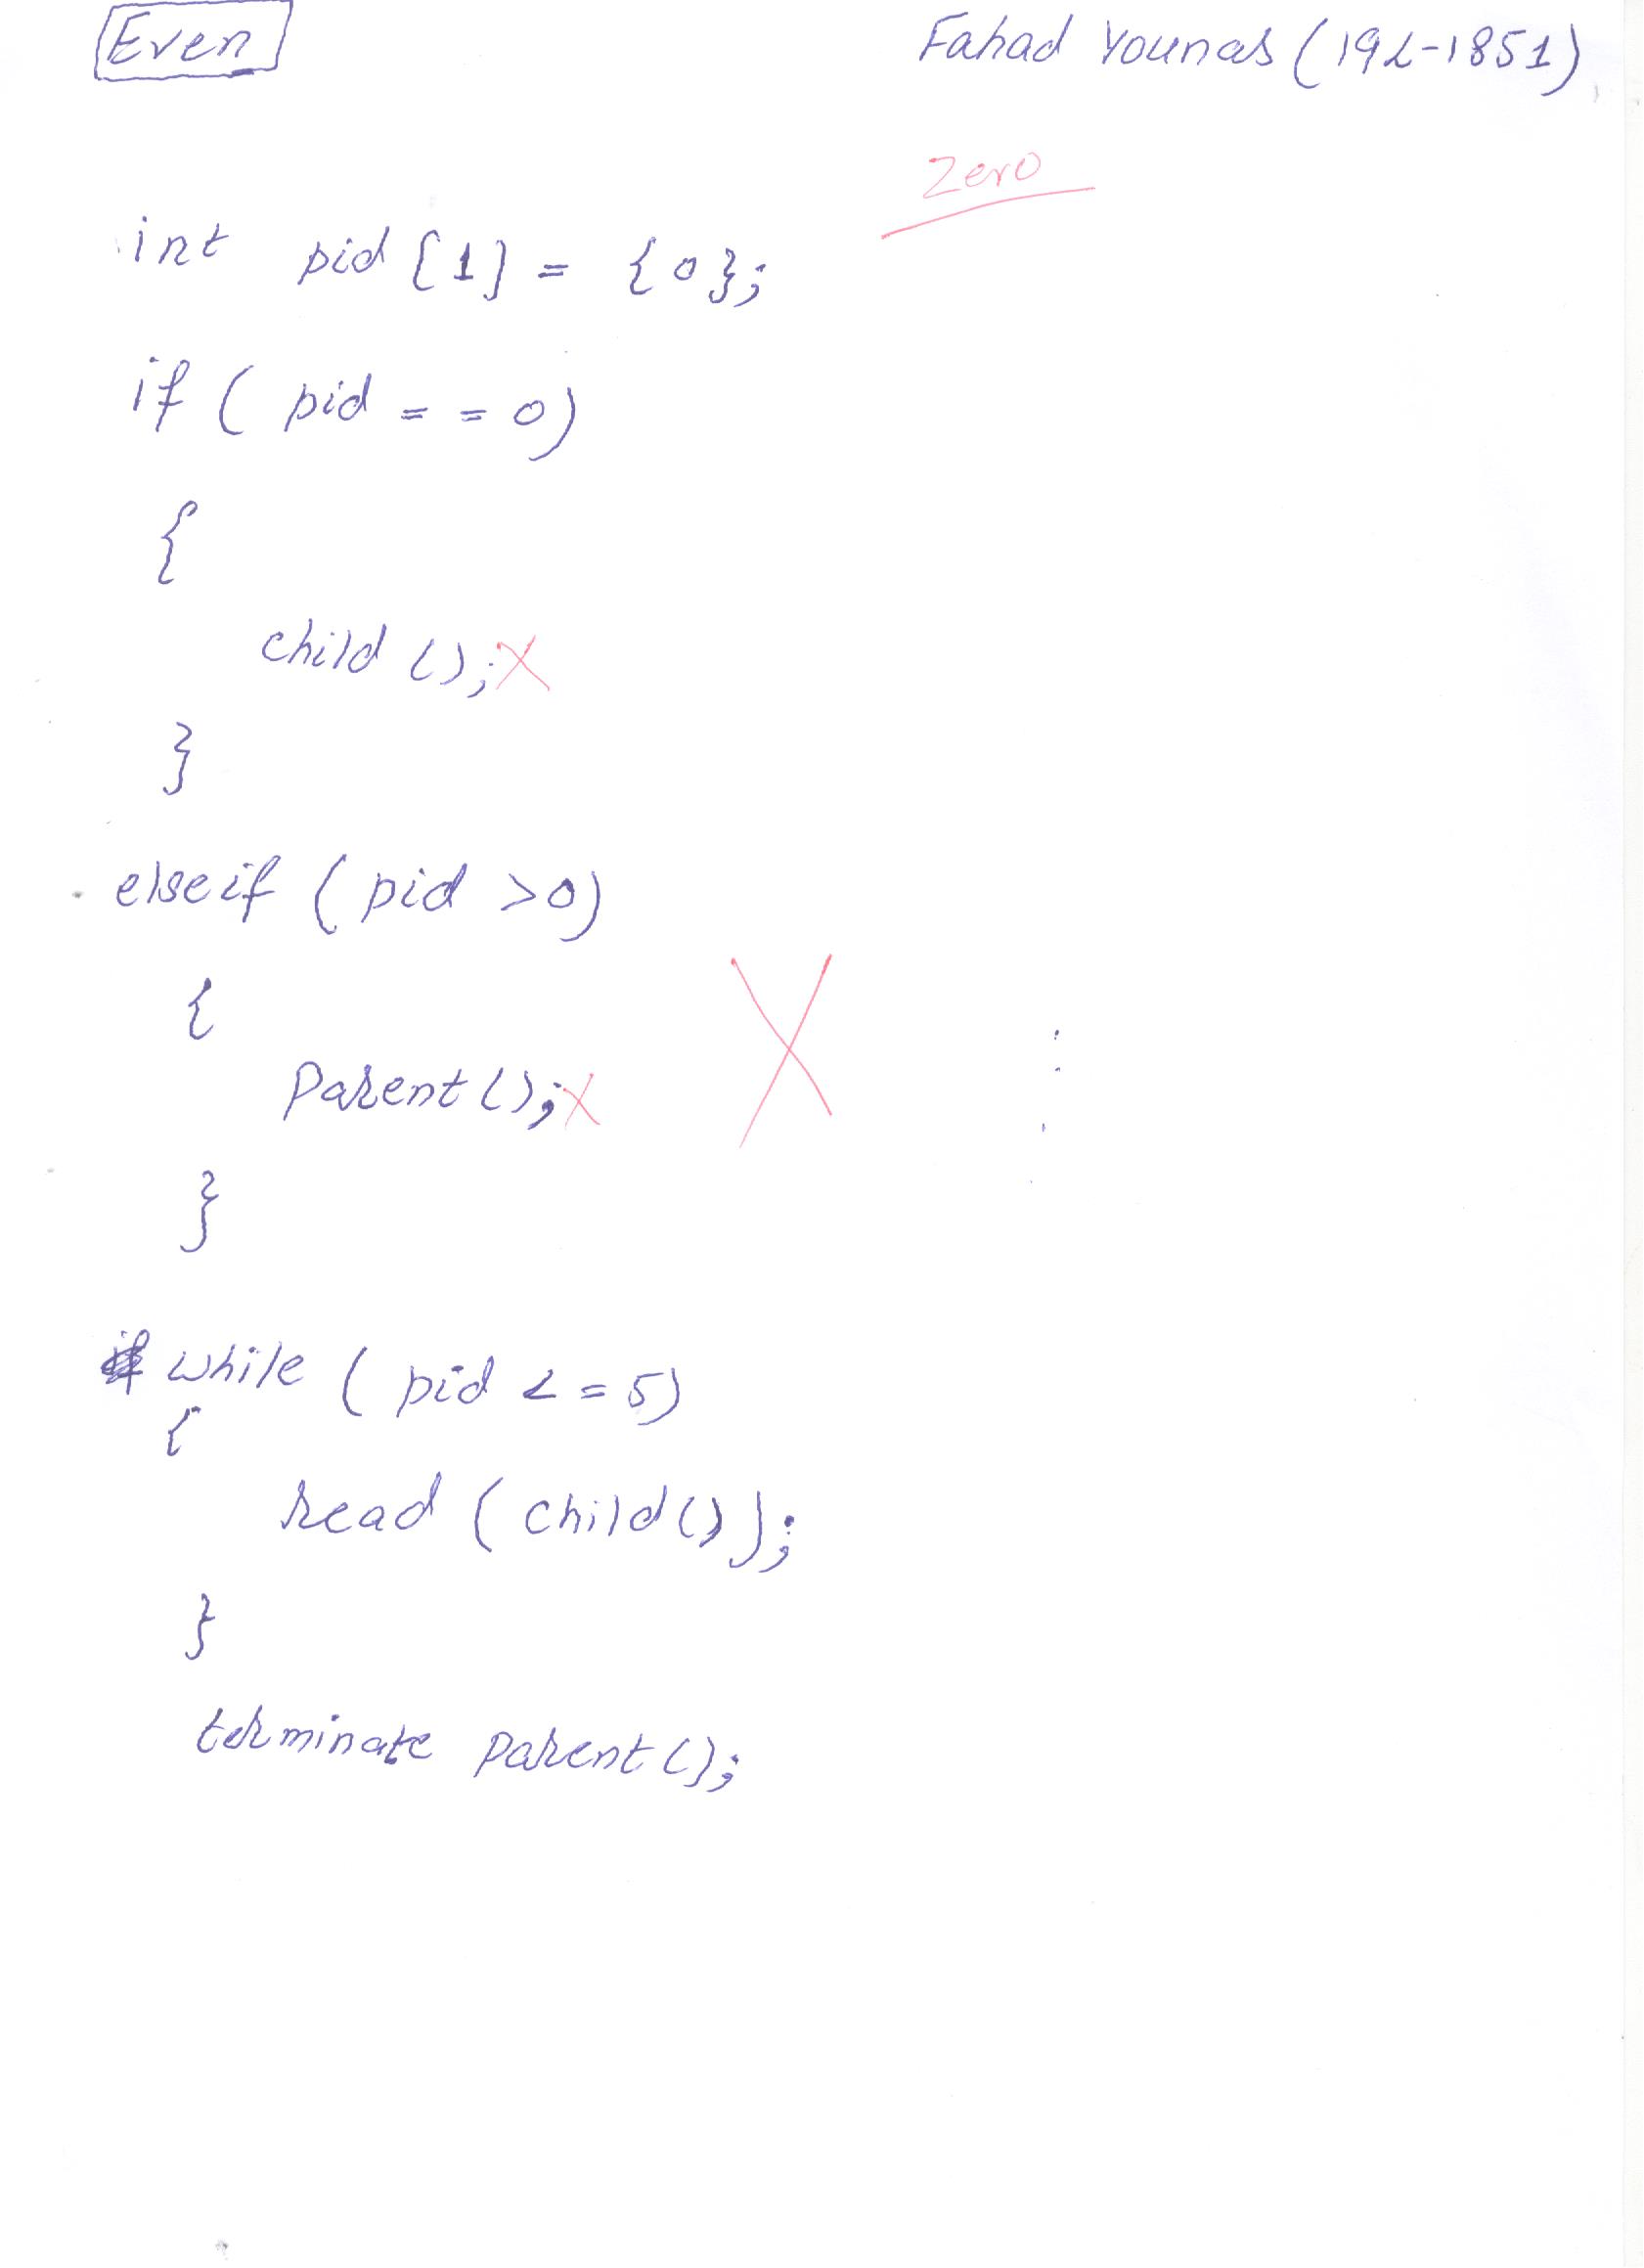 Even
Fahad Younas (19L-1851)
Zero
int pid[1] = {0};
if (pid == 0)
{
child();
}
elseif (pid >0)
{
Parent();
}
while (pid <= 5)
{
read (child());
}
terminate parent();